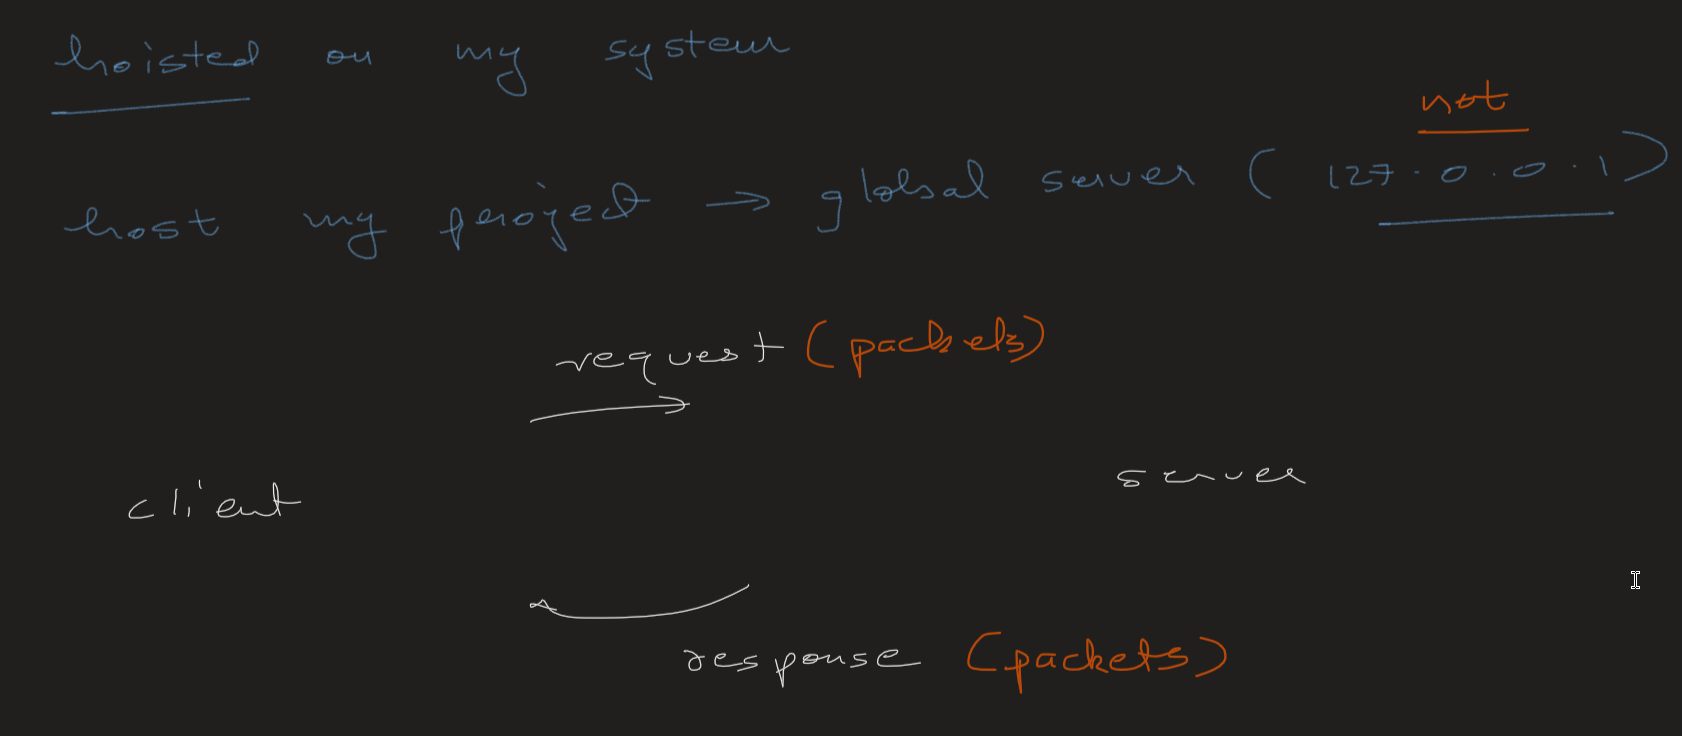 hoisted on my system
not
host my project → global server ( 127.0.0.1 )
request (packets)
server
client
response (packets)